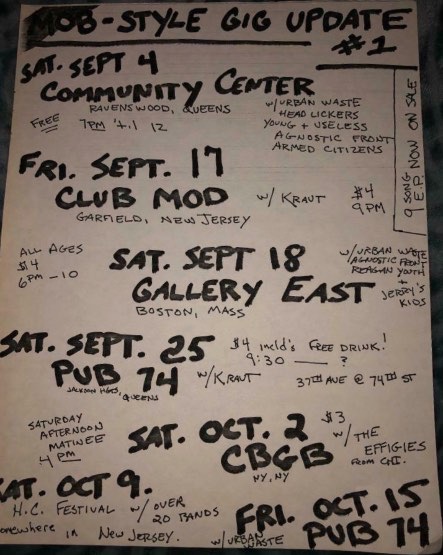 MOB-STYLE GIG UPDATE
#1
SAT. SEPT 4
COMMUNITY CENTER
RAVENSWOOD, QUEENS
FREE 7PM 'til 12
w/URBAN WASTE
HEAD LICKERS
YOUNG + USELESS
AGNOSTIC FRONT
ARMED CITIZENS
9 SONG
E.P. NOW ON SALE
FRI. SEPT. 17
CLUB MOD
GARFIELD, NEW JERSEY
w/ KRAUT
$4
9PM
ALL AGES
$4
6PM-10
SAT. SEPT 18
GALLERY EAST
BOSTON, MASS
w/URBAN WASTE
AGNOSTIC FRONT
REAGAN YOUTH
+
JERRY'S
KIDS
SAT. SEPT. 25
PUB 74
JACKSON HGTS, QUEENS
w/KRAUT
$4 incld's FREE DRINK!
9:30 — ?
37TH AVE @ 74TH ST
SATURDAY
AFTERNOON
MATINEE
4 PM
SAT. OCT. 2
CBGB
NY, NY
$3
w/ THE
EFFIGIES
FROM CHI.
SAT. OCT 9.
H.C. FESTIVAL w/OVER
20 BANDS
somewhere in New JERSEY.
FRI. OCT. 15
PUB 74
w/URBAN
WASTE